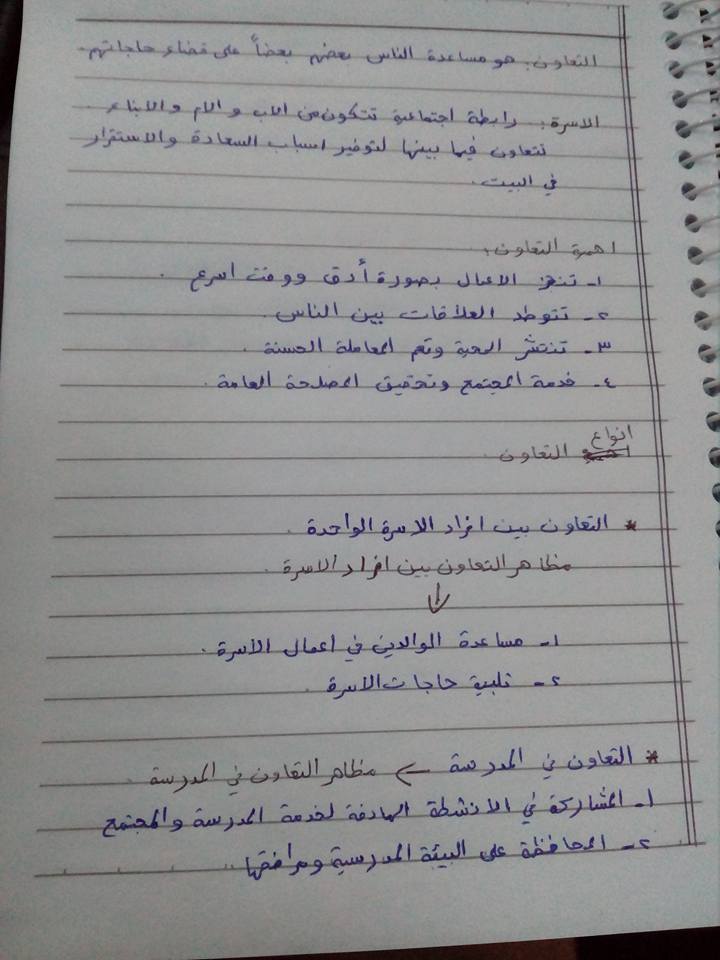 التعاون: هو مساعدة الناس بعضهم بعضاً على قضاء حاجاتهم.
الاسرة: رابطة اجتماعية تتكون من الاب و الام و الابناء
تتعاون فيما بينها لتوفير اسباب السعادة والاستقرار
في البيت.
اهمية التعاون:
١- تنجز الاعمال بصورة أدق ووقت اسرع.
٢- تتوطد العلاقات بين الناس.
٣- تنتشر المحبة وتعم المعاملة الحسنة.
٤- خدمة المجتمع وتحقيق المصلحة العامة.
انواع
التعاون.
* التعاون بين افراد الاسرة الواحدة.
مظاهر التعاون بين افراد الاسرة.
↓
١- مساعدة الوالدين في اعمال الأسرة.
٢- تلبية حاجات الأسرة.
* التعاون في المدرسة ← مظاهر التعاون في المدرسة.
١- المشاركة في الانشطة الهادفة لخدمة المدرسة والمجتمع
٢- المحافظة على البيئة المدرسية ومرافقها